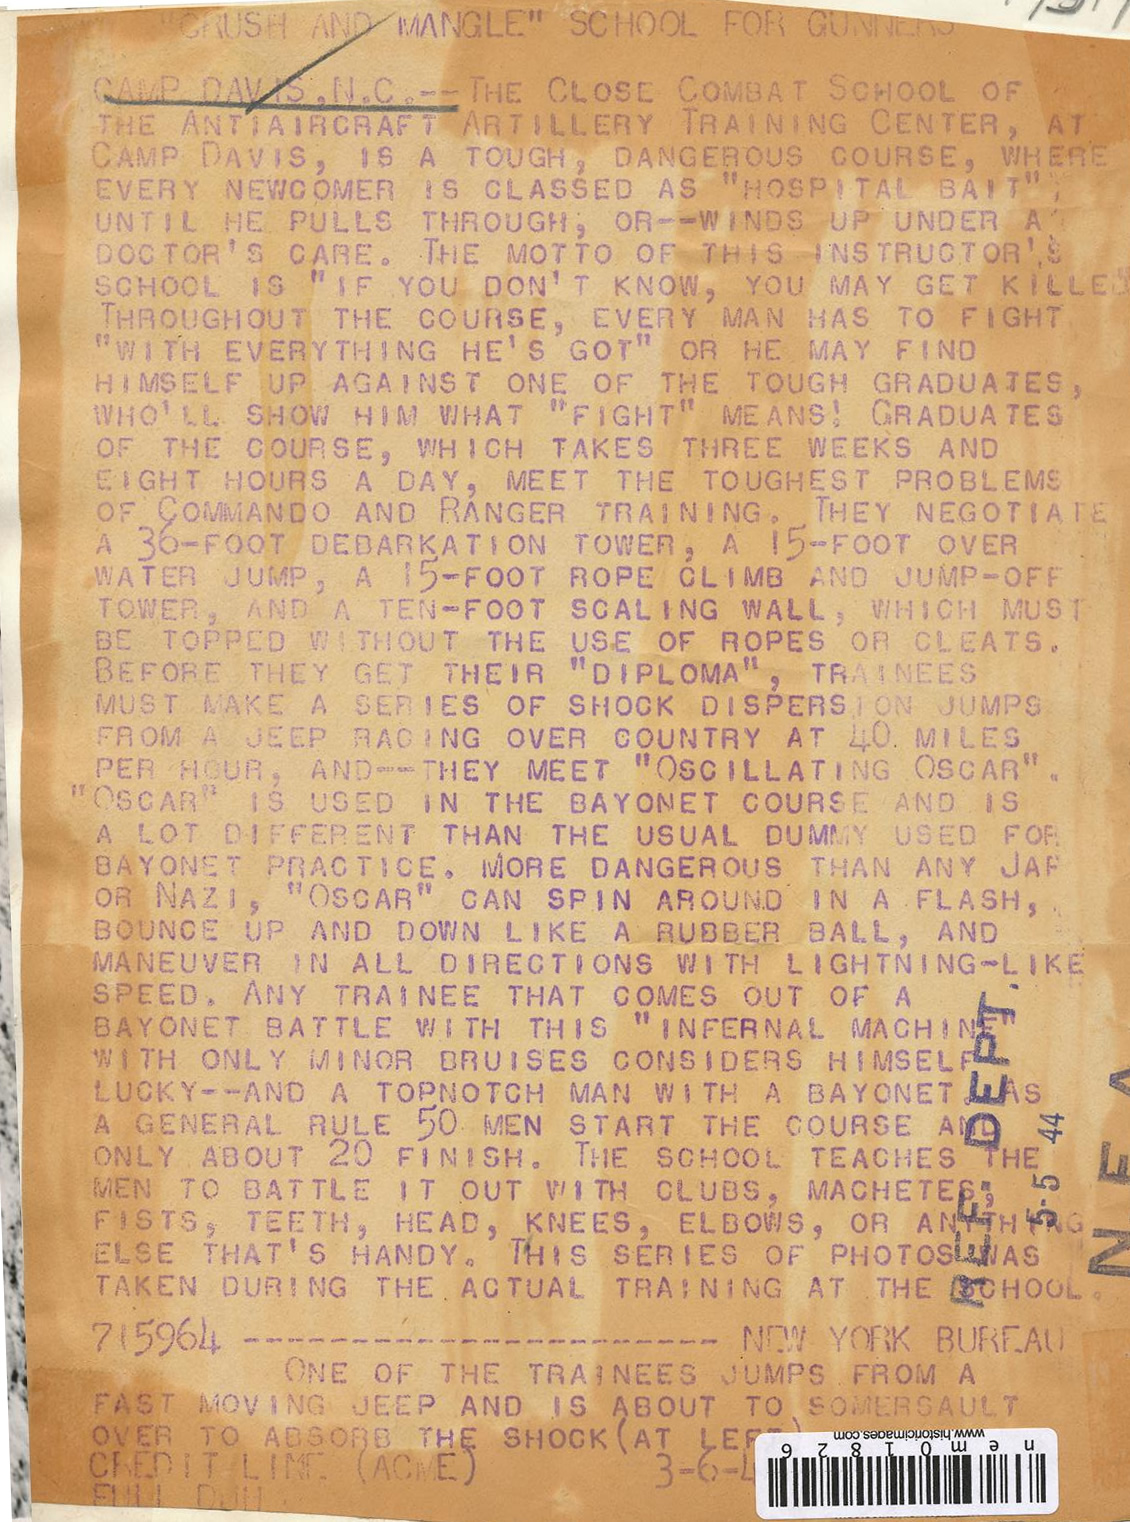 "CRUSH AND MANGLE" SCHOOL FOR GUNNERS
CAMP DAVIS,N.C.--THE CLOSE COMBAT SCHOOL OF
THE ANTIAIRCRAFT ARTILLERY TRAINING CENTER, AT
CAMP DAVIS, IS A TOUGH, DANGEROUS COURSE, WHERE
EVERY NEWCOMER IS CLASSED AS "HOSPITAL BAIT",
UNTIL HE PULLS THROUGH, OR--WINDS UP UNDER A
DOCTOR'S CARE. THE MOTTO OF THIS INSTRUCTOR'S
SCHOOL IS "IF YOU DON'T KNOW, YOU MAY GET KILLED"
THROUGHOUT THE COURSE, EVERY MAN HAS TO FIGHT
"WITH EVERYTHING HE'S GOT" OR HE MAY FIND
HIMSELF UP AGAINST ONE OF THE TOUGH GRADUATES,
WHO'LL SHOW HIM WHAT "FIGHT" MEANS! GRADUATES
OF THE COURSE, WHICH TAKES THREE WEEKS AND
EIGHT HOURS A DAY, MEET THE TOUGHEST PROBLEMS
OF COMMANDO AND RANGER TRAINING. THEY NEGOTIATE
A 36-FOOT DEBARKATION TOWER, A 15-FOOT OVER
WATER JUMP, A 15-FOOT ROPE CLIMB AND JUMP-OFF
TOWER, AND A TEN-FOOT SCALING WALL, WHICH MUST
BE TOPPED WITHOUT THE USE OF ROPES OR CLEATS.
BEFORE THEY GET THEIR "DIPLOMA", TRAINEES
MUST MAKE A SERIES OF SHOCK DISPERSION JUMPS
FROM A JEEP RACING OVER COUNTRY AT 40 MILES
PER HOUR, AND--THEY MEET "OSCILLATING OSCAR".
"OSCAR" IS USED IN THE BAYONET COURSE AND IS
A LOT DIFFERENT THAN THE USUAL DUMMY USED FOR
BAYONET PRACTICE. MORE DANGEROUS THAN ANY JAP
OR NAZI, "OSCAR" CAN SPIN AROUND IN A FLASH,
BOUNCE UP AND DOWN LIKE A RUBBER BALL, AND
MANEUVER IN ALL DIRECTIONS WITH LIGHTNING-LIKE
SPEED. ANY TRAINEE THAT COMES OUT OF A
BAYONET BATTLE WITH THIS "INFERNAL MACHINE"
WITH ONLY MINOR BRUISES CONSIDERS HIMSELF
LUCKY--AND A TOPNOTCH MAN WITH A BAYONET. AS
A GENERAL RULE 50 MEN START THE COURSE AND
ONLY ABOUT 20 FINISH. THE SCHOOL TEACHES THE
MEN TO BATTLE IT OUT WITH CLUBS, MACHETES,
FISTS, TEETH, HEAD, KNEES, ELBOWS, OR ANYTHING
ELSE THAT'S HANDY. THIS SERIES OF PHOTOS WAS
TAKEN DURING THE ACTUAL TRAINING AT THE SCHOOL.
715964 ---------------------- NEW YORK BUREAU
ONE OF THE TRAINEES JUMPS FROM A
FAST MOVING JEEP AND IS ABOUT TO SOMERSAULT
OVER TO ABSORB THE SHOCK(AT LEFT)
CREDIT LINE (ACME) 3-6-4
REF. DEPT.
5-5 44
NEA
www.historicimages.com
nem01826